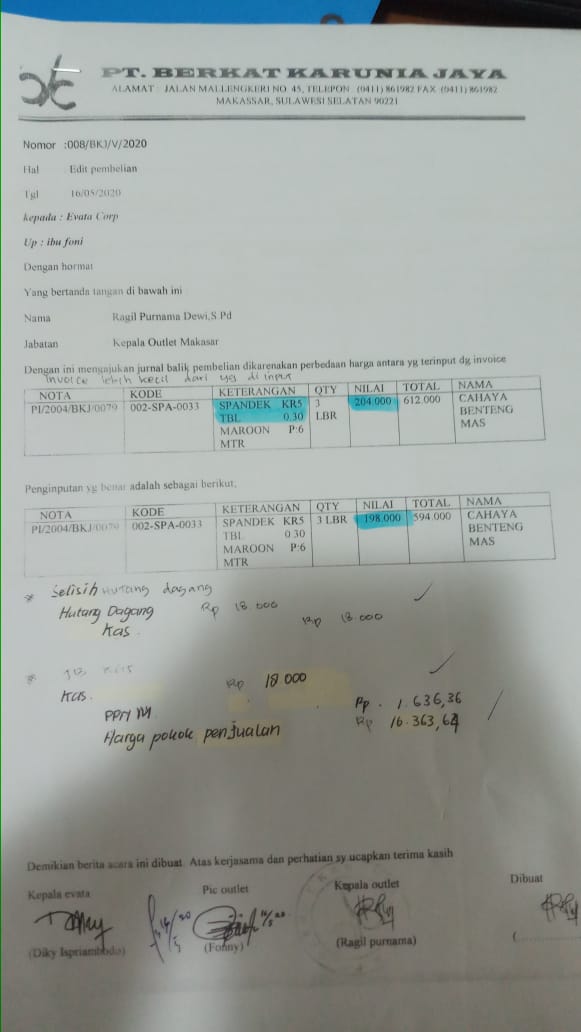 PT. BERKAT KARUNIA JAYA
ALAMAT : JALAN MALLENGKERI NO 45, TELEPON (0411) 861982 FAX (0411) 861982
MAKASSAR, SULAWESI SELATAN 90221
Nomor :008/BKJ/V/2020
Hal Edit pembelian
Tgl 16/05/2020
kepada : Evata Corp
Up : ibu foni
Dengan hormat
Yang bertanda tangan di bawah ini
Nama Ragil Purnama Dewi,S Pd
Jabatan Kepala Outlet Makasar
Dengan ini mengajukan jurnal balik pembelian dikarenakan perbedaan harga antara yg terinput dg invoice
Invoice lebih kecil dari yg di input
NOTA KODE KETERANGAN QTY NILAI TOTAL NAMA
PI/2004/BKJ/0079 002-SPA-0033 SPANDEK KR5 3 204.000 612.000 CAHAYA
TBL 0.30 LBR BENTENG
MAROON P:6 MAS
MTR
Penginputan yg benar adalah sebagai berikut,
NOTA KODE KETERANGAN QTY NILAI TOTAL NAMA
PI/2004/BKJ/0079 002-SPA-0033 SPANDEK KR5 3 LBR 198.000 594.000 CAHAYA
TBL 0.30 BENTENG
MAROON P:6 MAS
MTR
* Selisih Hutang dagang
Hutang Dagang Rp 18.000
Kas. Rp 18.000
*
Kas. Rp 18.000
PPN M Rp. 1.636,36
Harga pokok penjualan Rp 16.363,64
Demikian berita acara ini dibuat. Atas kerjasama dan perhatian sy ucapkan terima kasih
Kepala evata Pic outlet Kepala outlet Dibuat
(Diky Ispriambodo) (Fonny) (Ragil purnama) (